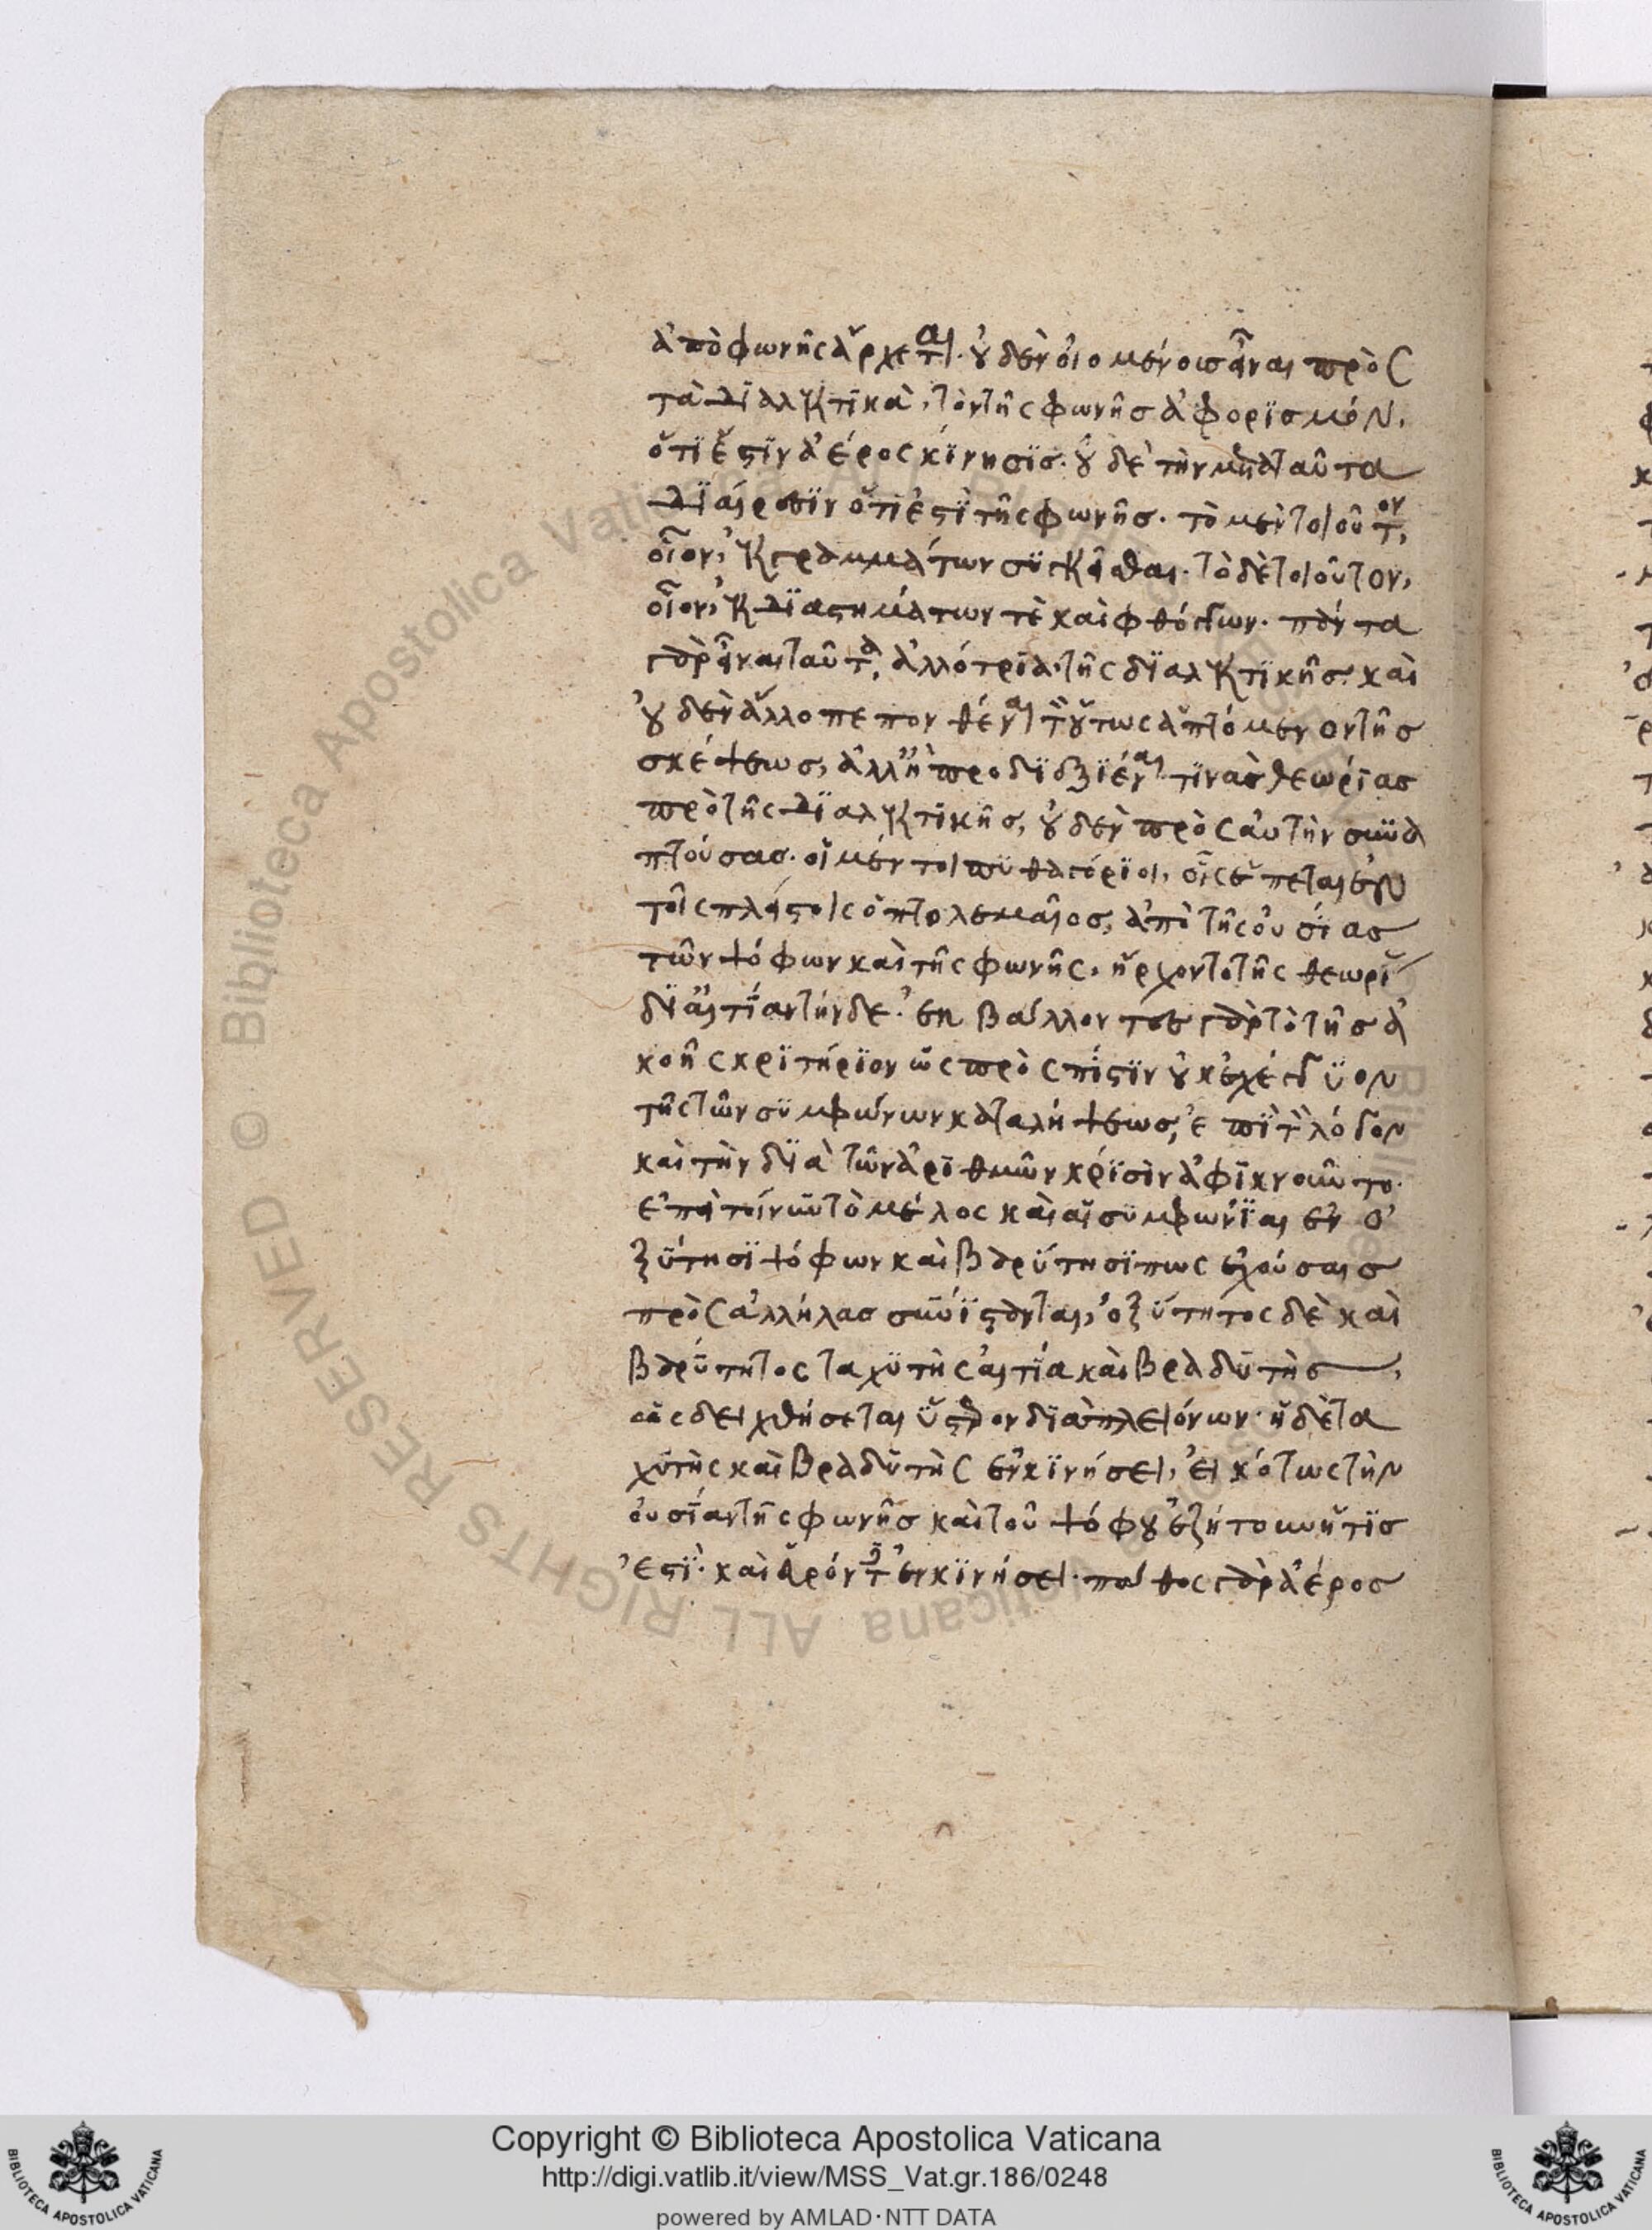 ἀπὸ φωνῆς ἄρχεται. οὐδὲν οἰόμενος εἶναι πρὸς
τὰ διαλεκτικὰ, τὸν τῆς φωνῆς ἀφορισμόν.
ὅτι ἐστὶν ἀέρος κίνησις. οὐδὲ τὴν μετὰ ταῦτα
διαίρεσιν ὅτι ἐστὶ τῆς φωνῆς. τὸ μὲν τοιοῦτον,
οἷον, ἐκ γραμμάτων συγκεῖσθαι. τὸ δὲ τοιοῦτον,
οἷον, ἐκ διαστημάτων τὲ καὶ φθόγγων. πάντα
γὰρ εἶναι ταῦτα, ἀλλότρια τῆς διαλεκτικῆς. καὶ
οὐδὲν ἄλλο πεπονθέναι τὸν οὕτως ἁπτόμενον τῆς
σκέψεως, ἀλλ' ἢ προδιεξιέναι τινὰς θεωρίας
πρὸ τῆς διαλεκτικῆς, οὐδὲν πρὸς αὐτὴν συνα
πτούσας. οἱ μέν τοι πυθαγόριοι, οἷς ἕπεται ἐν
τοῖς πλείστοις ὁ πτολεμαῖος, ἀπὸ τῆς οὐσίας
τῶν ψόφων καὶ τῆς φωνῆς, ἤρχοντο τῆς θεωρί
δι' αἰτίαν τήνδε. ἐκβάλλοντες γὰρ τὸ τῆς ἀ
κοῆς κριτήριον ὡς πρὸς πίστιν οὐκ ἐχέγγυον
τῆς τῶν συμφώνων καταλήψεως, ἐπὶ τὸν λόγον
καὶ τὴν διὰ τῶν ἀριθμῶν κρίσιν ἀφικνοῦντο.
ἐπεὶ τοίνυν τὸ μέλος καὶ αἱ συμφωνίαι ἐν ὀ
ξύτησι ψόφων καὶ βαρύτησί πως ἐχούσαις
πρὸς ἀλλήλας συνίστανται, ὀξύτητος δὲ καὶ
βαρύτητος ταχυτὴς αἰτία καὶ βραδυτὴς,
ὡς δειχθήσεται ὕστερον διὰ πλειόνων. ἡ δὲ τα
χυτὴς καὶ βραδυτὴς ἐν κινήσει, εἰκότως τὴν
οὐσίαν τῆς φωνῆς καὶ τοῦ ψόφου ἐζήτουν ἥτις
ἐστὶ. καὶ εὗρόν τε ἐν κινήσει. πάθος γὰρ ἀέρος
Copyright © Biblioteca Apostolica Vaticana
http://digi.vatlib.it/view/MSS_Vat.gr.186/0248
powered by AMLAD·NTT DATA